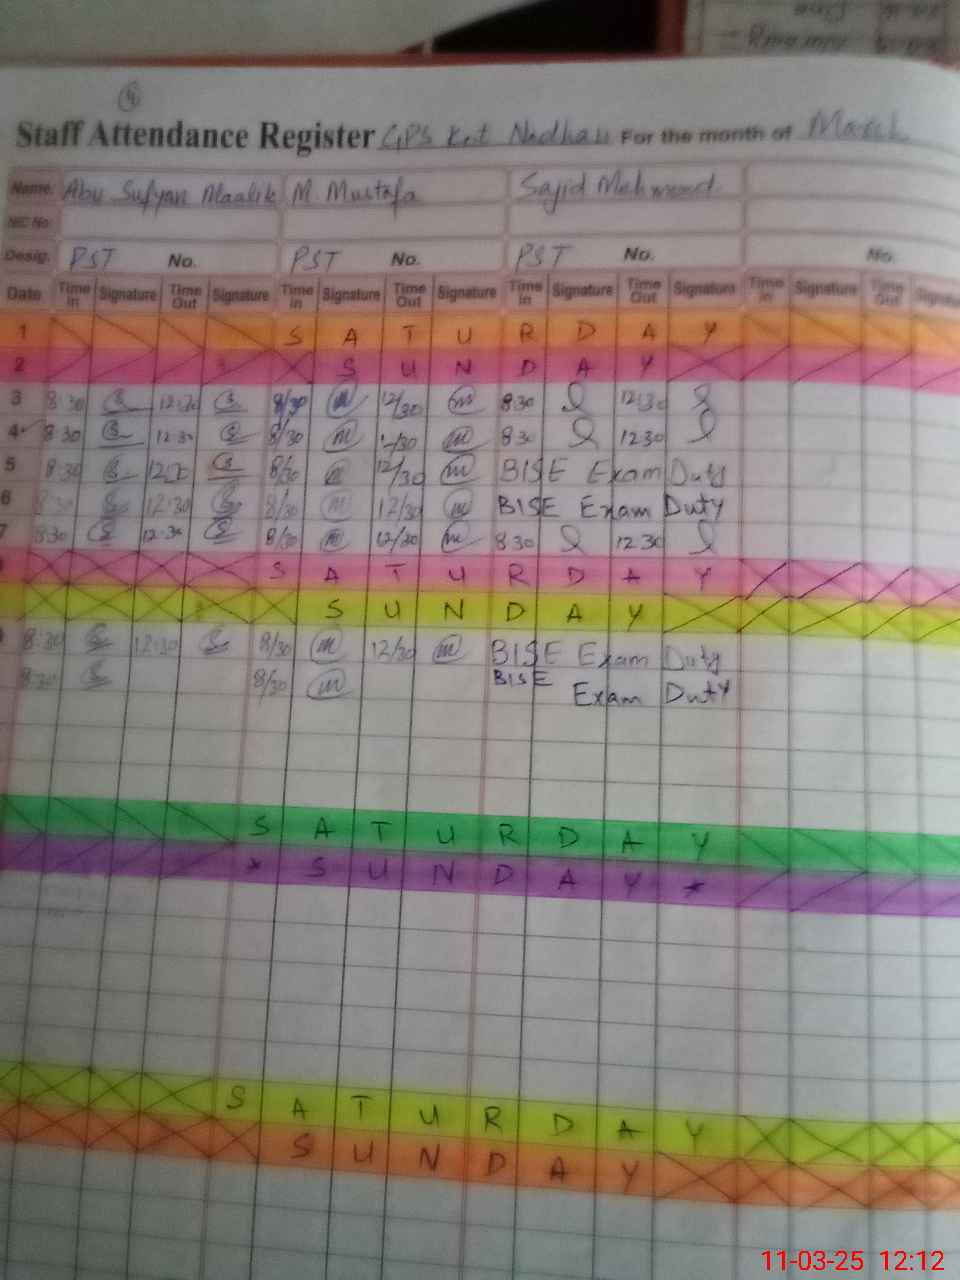 4
Staff Attendance Register GPS Kot Nadhan For the month of March
Name: Abu Sufyan Maalik M. Mustafa Sajid Mehmood
NIC No.
Desig. PST No. PST No. PST No. No.
Date Time In Signature Time Out Signature Time In Signature Time Out Signature Time In Signature Time Out Signature Time In Signature Time Out Signature
1 S A T U R D A Y
2 S U N D A Y
3 8:30 12:30 8/30 m 12/30 m 8 30 12:30
4 8 30 12 30 8/30 m /30 m 8 30 12 30
5 8:30 12:30 8/30 m 12/30 m BISE Exam Duty
6 8:30 12:30 8/30 m 12/30 m BISE Exam Duty
7 8:30 12:30 8/30 m 12/30 m 8 30 12 30
S A T U R D A Y
S U N D A Y
8:30 12:30 8/30 m 12/30 m BISE Exam Duty
8:30 8/30 m BISE Exam Duty
S A T U R D A Y
* S U N D A Y *
S A T U R D A Y
S U N D A Y
11-03-25 12:12